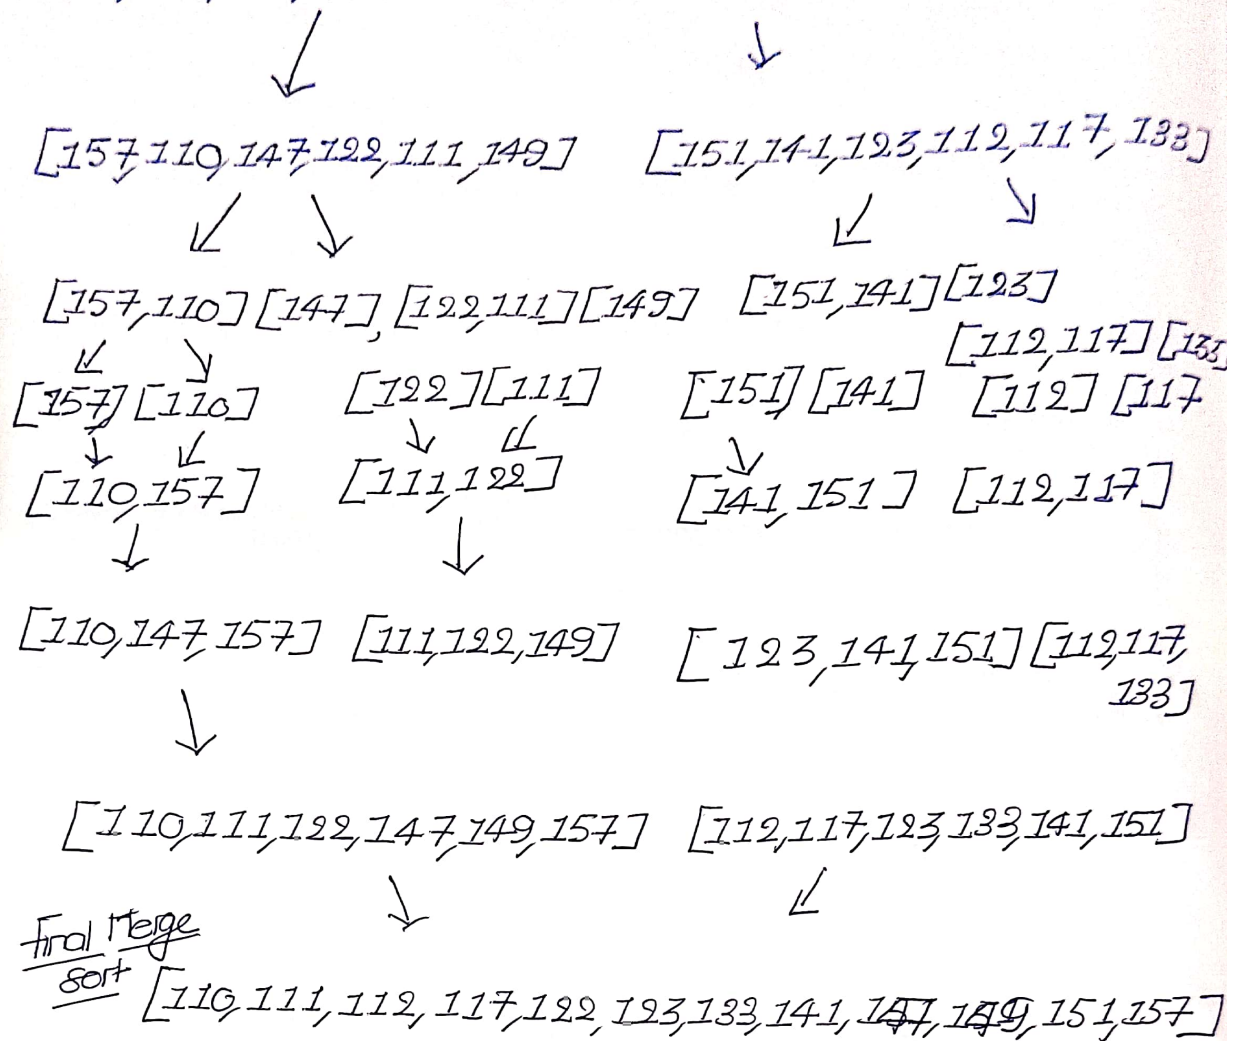 [157,110,147,122,111,149] [151,141,123,112,117,133]
[157,110] [147], [122,111] [149] [151,141] [123]
[112,117] [133
[157] [110] [122] [111] [151] [141] [112] [117
[110,157] [111,122] [141,151] [112,117]
[110,147,157] [111,122,149] [123,141,151] [112,117,
133]
[110,111,122,147,149,157] [112,117,123,133,141,151]
Final Merge
Sort [110,111,112,117,122,123,133,141,147,149,151,157]